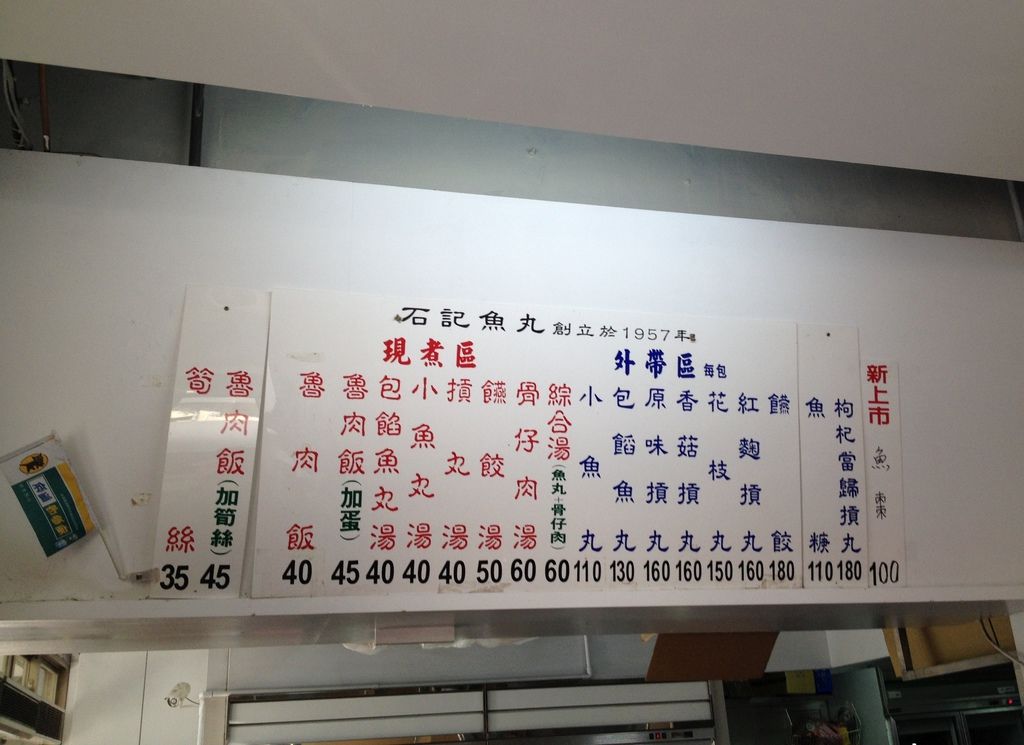 石記魚丸 創立於1957年
現煮區
外帶區 每包
筍絲 35
魯肉飯(加筍絲) 45
魯肉飯 40
魯肉飯(加蛋) 45
包餡魚丸湯 40
小魚丸湯 40
摃丸湯 40
饊餃湯 50
骨仔肉湯 60
綜合湯(魚丸+骨仔肉) 60
小魚丸 110
包餡魚丸 130
原味摃丸 160
香菇摃丸 160
花枝丸 150
紅麴摃丸 160
魚糠 110
枸杞當歸摃丸 180
新上市
魚
100